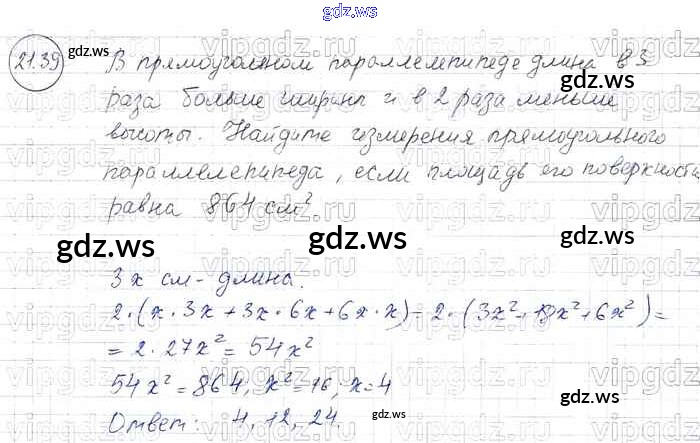 gdz.ws
21.39
gdz.ws
В прямоугольном параллелепипеде длина в 3
раза больше ширины и в 2 раза меньше
высоты. Найдите измерения прямоугольного
параллелепипеда, если площадь его поверхности
равна 864 см²
gdz.ws gdz.ws
3x см - длина.
2·(x·3x+3x·6x+6x·x) = 2·(3x²+18x²+6x²)=
= 2·27x² = 54x²
54x²=864, x²=16; x=4
Ответ: 4, 12, 24.
gdz.ws
gdz.ws
vipgdz.ru